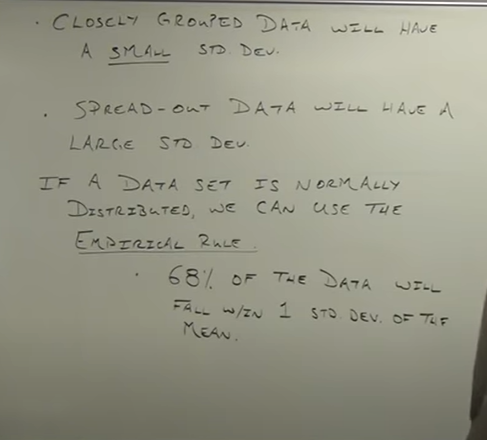 · CLOSELY GROUPED DATA WILL HAVE
A SMALL STD. DEV.
· SPREAD-OUT DATA WILL HAVE A
LARGE STD DEV.
IF A DATA SET IS NORMALLY
DISTRIBUTED, WE CAN USE THE
EMPIRICAL RULE.
· 68% OF THE DATA WILL
FALL W/IN 1 STD. DEV. OF THE
MEAN.